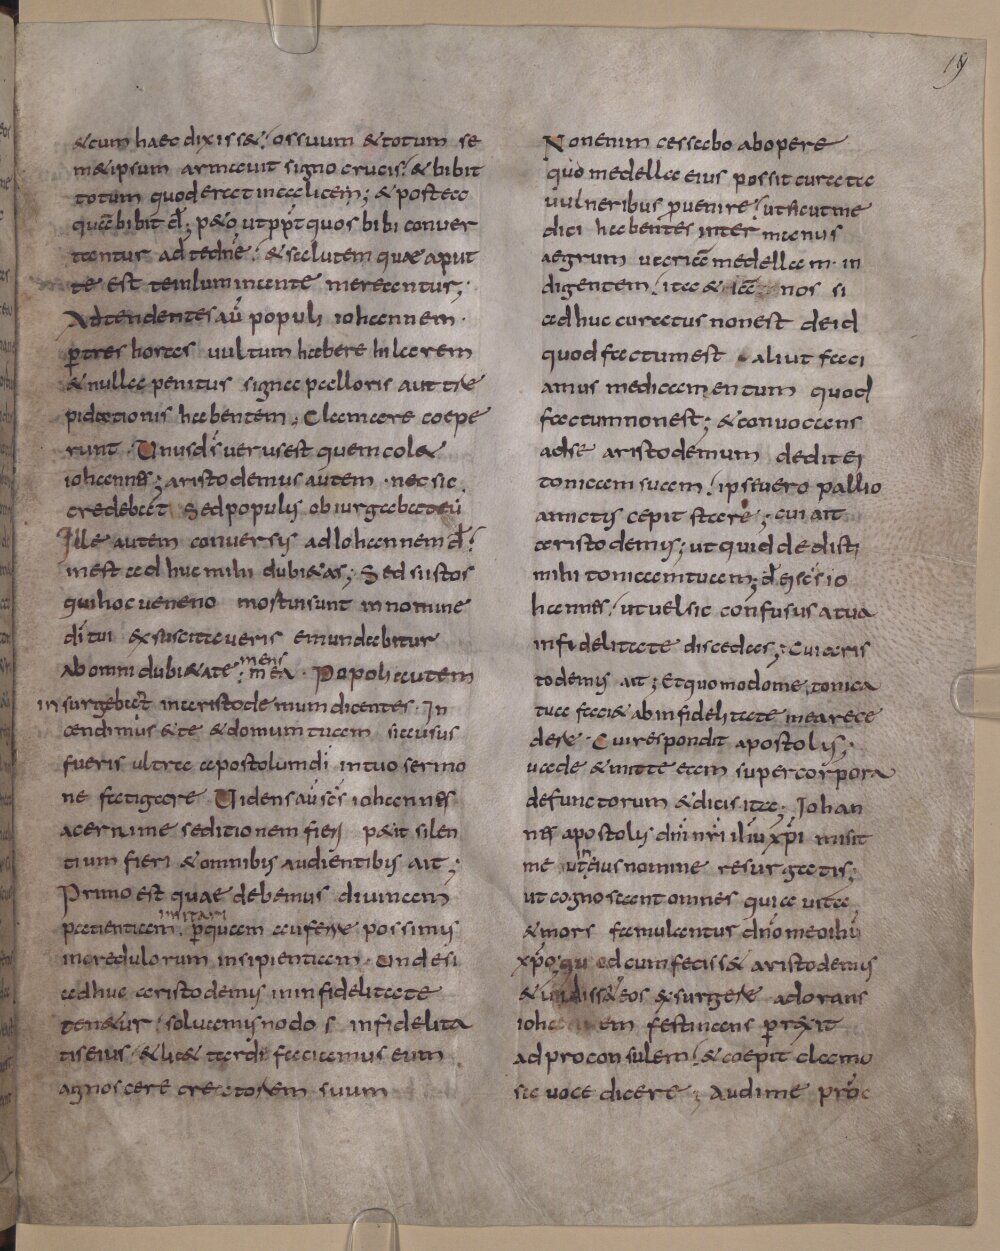 19
&cum haec dixiss&; os suum & totum se
m&ipsum armavit signo crucis; & bibit
totum quod erat in calicem; & postea
quā bibit dx̄; p&o, ut pp̄t quos bibi conver
tantur ad te dn̄e; & salutem quae aput
te est te inluminante merentur;
Adtendentes aū populi iohannem·
p̄ tres horas vultum habere hilarem
& nulla penitus signa palloris aut tre
pidationis habentem; Clamare coepe
runt· Unus d̄s verus est quem col&
iohannes; aristodemus autem· nec sic
credebat Sed populus obiurgabat eū
Ille autem conversus ad Iohannem dx̄;
inest adhuc mihi dubi&as; Sed si istos
qui hoc veneno mortui sunt in nomine
di tui exsuscitaveris emundabitur
ab omni dubi&ate; mens mea· Popoli autem
insurgebat in aristodemum dicentes· In
cendimus & te & domum tuam si ausus
fueris ultra apostolum di in tuo sermo
ne fatigare Videns aū scs iohannes
acerrime seditionem fieri p&it silen
tium fieri & omnibus audientibus ait;
Primo est quae debemus divinam
patientiam imitari p̄quam auferre possimus
incredulorum insipientiam· Unde si
adhuc aristodemus in infidelitate
ten&ur; solvamus nodos infidelita
tis eius; & lic& tarde faciamus eum
agnoscere creatorem suum
Non enim cessabo ab opere
quo medella eius possit curata
vulneribus p̄venire; ut sicut me
dici habentes inter manus
aegrum varia medella m· in
digentem; ita & nos si
adhuc curatus non est de id
quod factum est· aliut faci
amus medicamentum quod
factum non est; & convocans
ad se aristodemum dedit ei
tonicam suam; ipse vero pallio
amictus cepit stare; cui ait
aristodemus; ut quid dedisti
mihi tonicam tuam; dx̄ ei scs io
hannes; ut vel sic confusus a tua
infidelitate discedas; Cui aris
todemus ait; Et quomodo me tonica
tua faci& ab infidelitate mea rece
dere· Cui respondit apostolus;
vade & mitte eam super corpora
defunctorum & dicis ita; Iohan
nes apostolus dn̄i nr̄i ih̄u xp̄i misit
me ut in eius nomine resurgatis;
ut cognoscant omnes quia vita
& mors famulantur dn̄o meo ih̄u
xp̄o; quod cum feciss& aristodemus
& vidiss& eos exsurgere adorans
iohannem festinans p̄rexit
ad proconsulem; & coepit clamo
sa voce dicere; Audi me proc